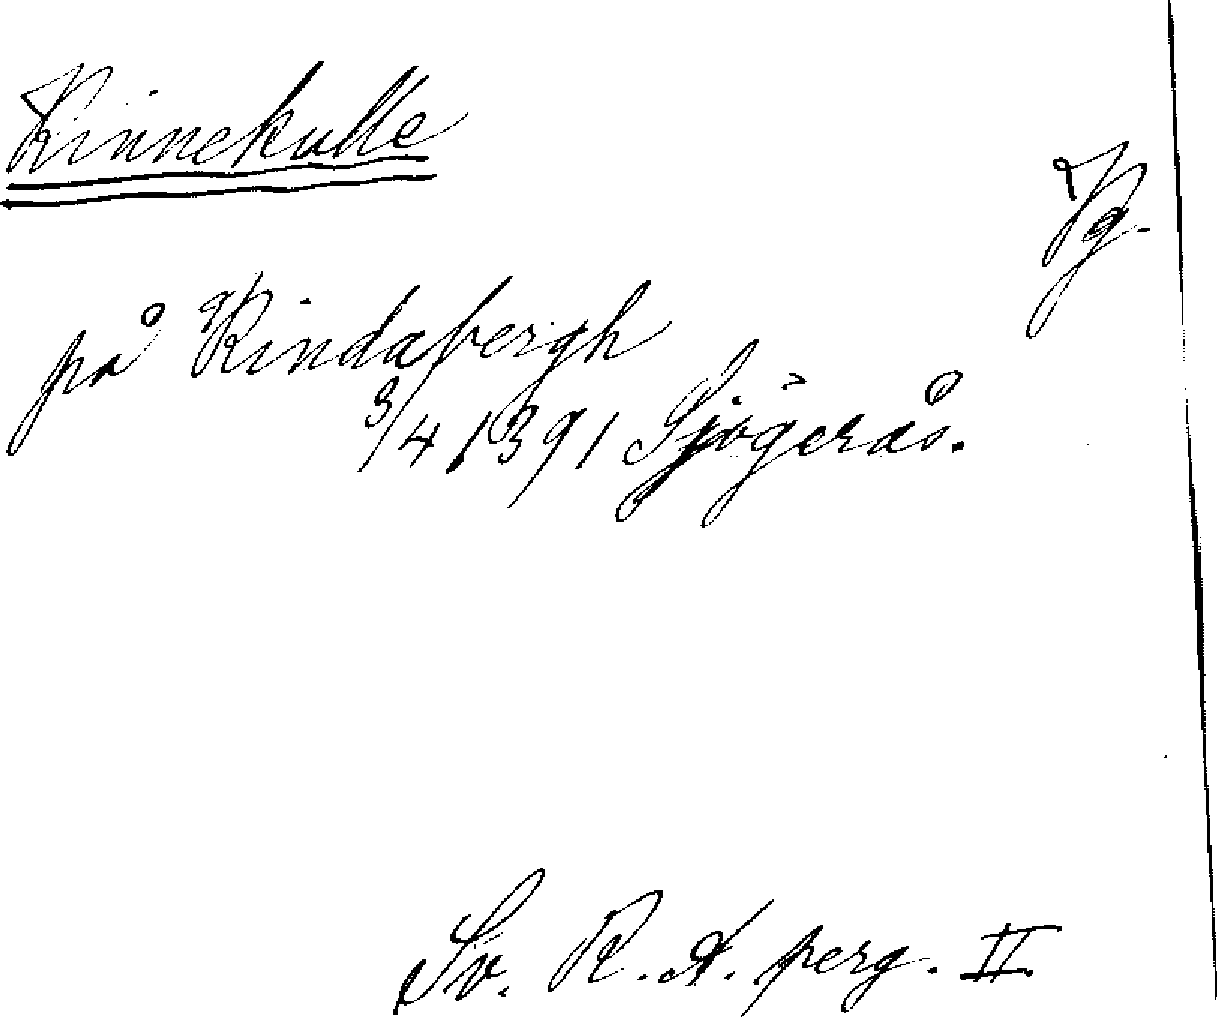 Kinnekulle
Vg.
på Kindabergh
3/4 1391 Sjögerås.
Sv. R. A. perg. II